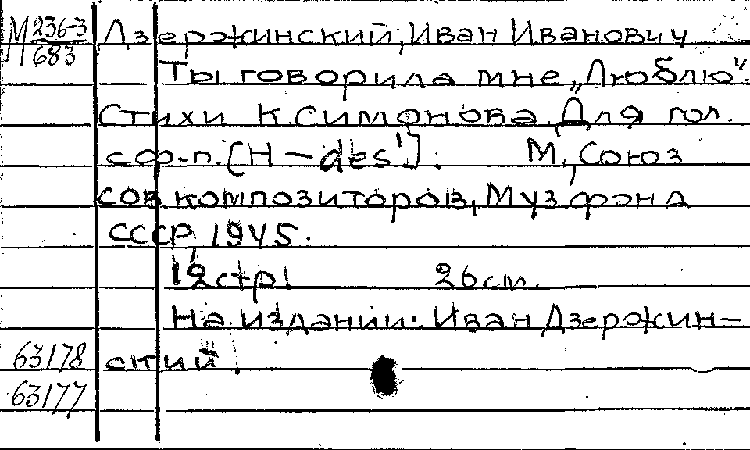 М 236-3
683
Дзержинский, Иван Иванович
Ты говорила мне „Люблю“.
Стихи К. Симонова. Для гол.
с ф-п. [H – des']. М., Союз
сов композиторов, Музфонд
СССР, 1945.
12 стр. 26 см.
На издании: Иван Дзержин-
63178 ский.
63177